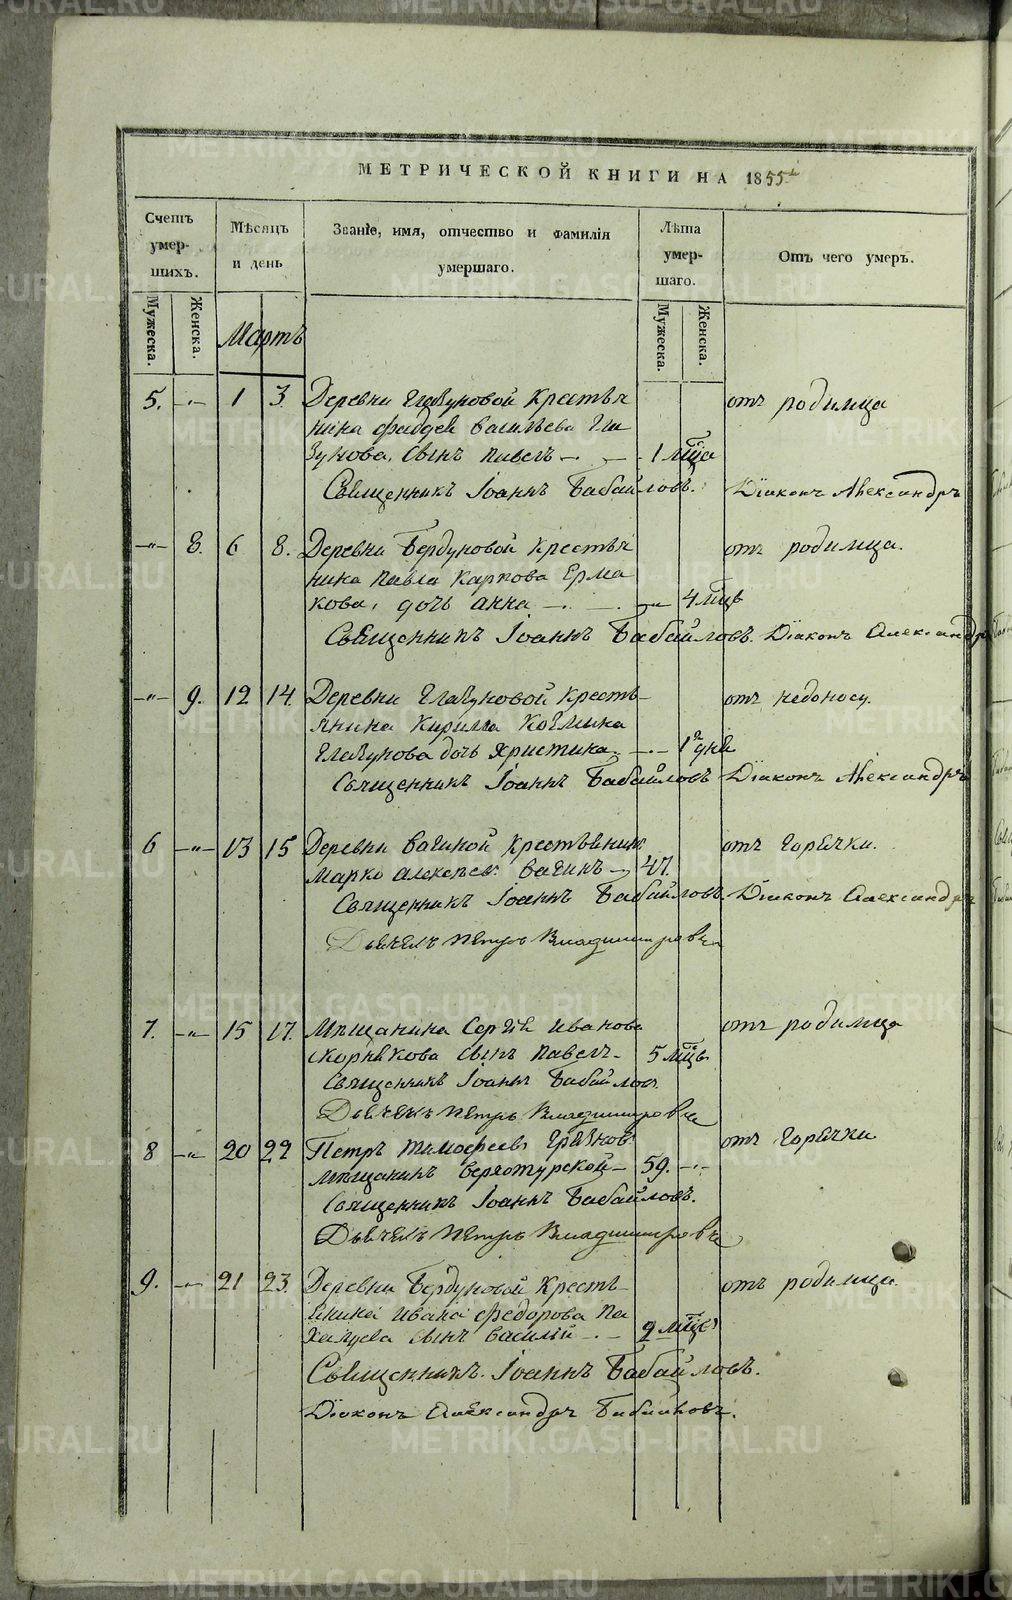 МЕТРИЧЕСКОЙ КНИГИ НА 1855
Счетъ умер- шихъ. Мѣсяцъ и день Званіе, имя, отчество и фамилія умершаго. Лѣта умер- шаго. Отъ чего умеръ.
Мужеска. Женска. Мартъ Мужеска. Женска.
5. -„- 1 3. Деревни Глазуновой Крестья отъ родимца
нина Фаддея Васильева Гла
зунова, сынъ Павелъ 1 мца
Священникъ Іоаннъ Бабайловъ. Діаконъ Александръ
-„- 8. 6 8. Деревни Бердуновой Крестья отъ родимца.
нина Павла Карпова Ерма
кова, дочь Анна 4 мцъ
Священникъ Іоаннъ Бабайловъ. Діаконъ Александръ
-„- 9. 12 14. Деревни Глазуновой Кресть- отъ недоносу.
янина Кирилла Козмина
Глазунова дочь Христина 1 дня
Священникъ Іоаннъ Бабайловъ Діаконъ Александръ
6 -„- 13 15 Деревни Вагиной Крестьянин отъ горячки.
Марко Алексѣев Вагинъ 47.
Священникъ Іоаннъ Бабайловъ. Діаконъ Александръ
Дьячекъ Петръ
7. -„- 15 17. Мѣщанина Сергѣя Иванова отъ родимца
Скорнякова сынъ Павелъ 5 мцъ
Священникъ Іоаннъ Бабайлов
Дьячекъ Петръ
8 -„- 20 22 Петръ Тимофеевъ Грязнов отъ горячки
мѣщанинъ Верхотурской 59. -„-
Священникъ Іоаннъ Бабайловъ.
Дьячекъ Петръ
9. -„- 21 23. Деревни Бердуновой Кресть отъ родимца.
янина Ивана Федорова
сынъ Василій 9 мцъ
Священникъ Іоаннъ Бабайловъ.
Діаконъ Александръ Бабайловъ.
METRIKI.GASO-URAL.RU